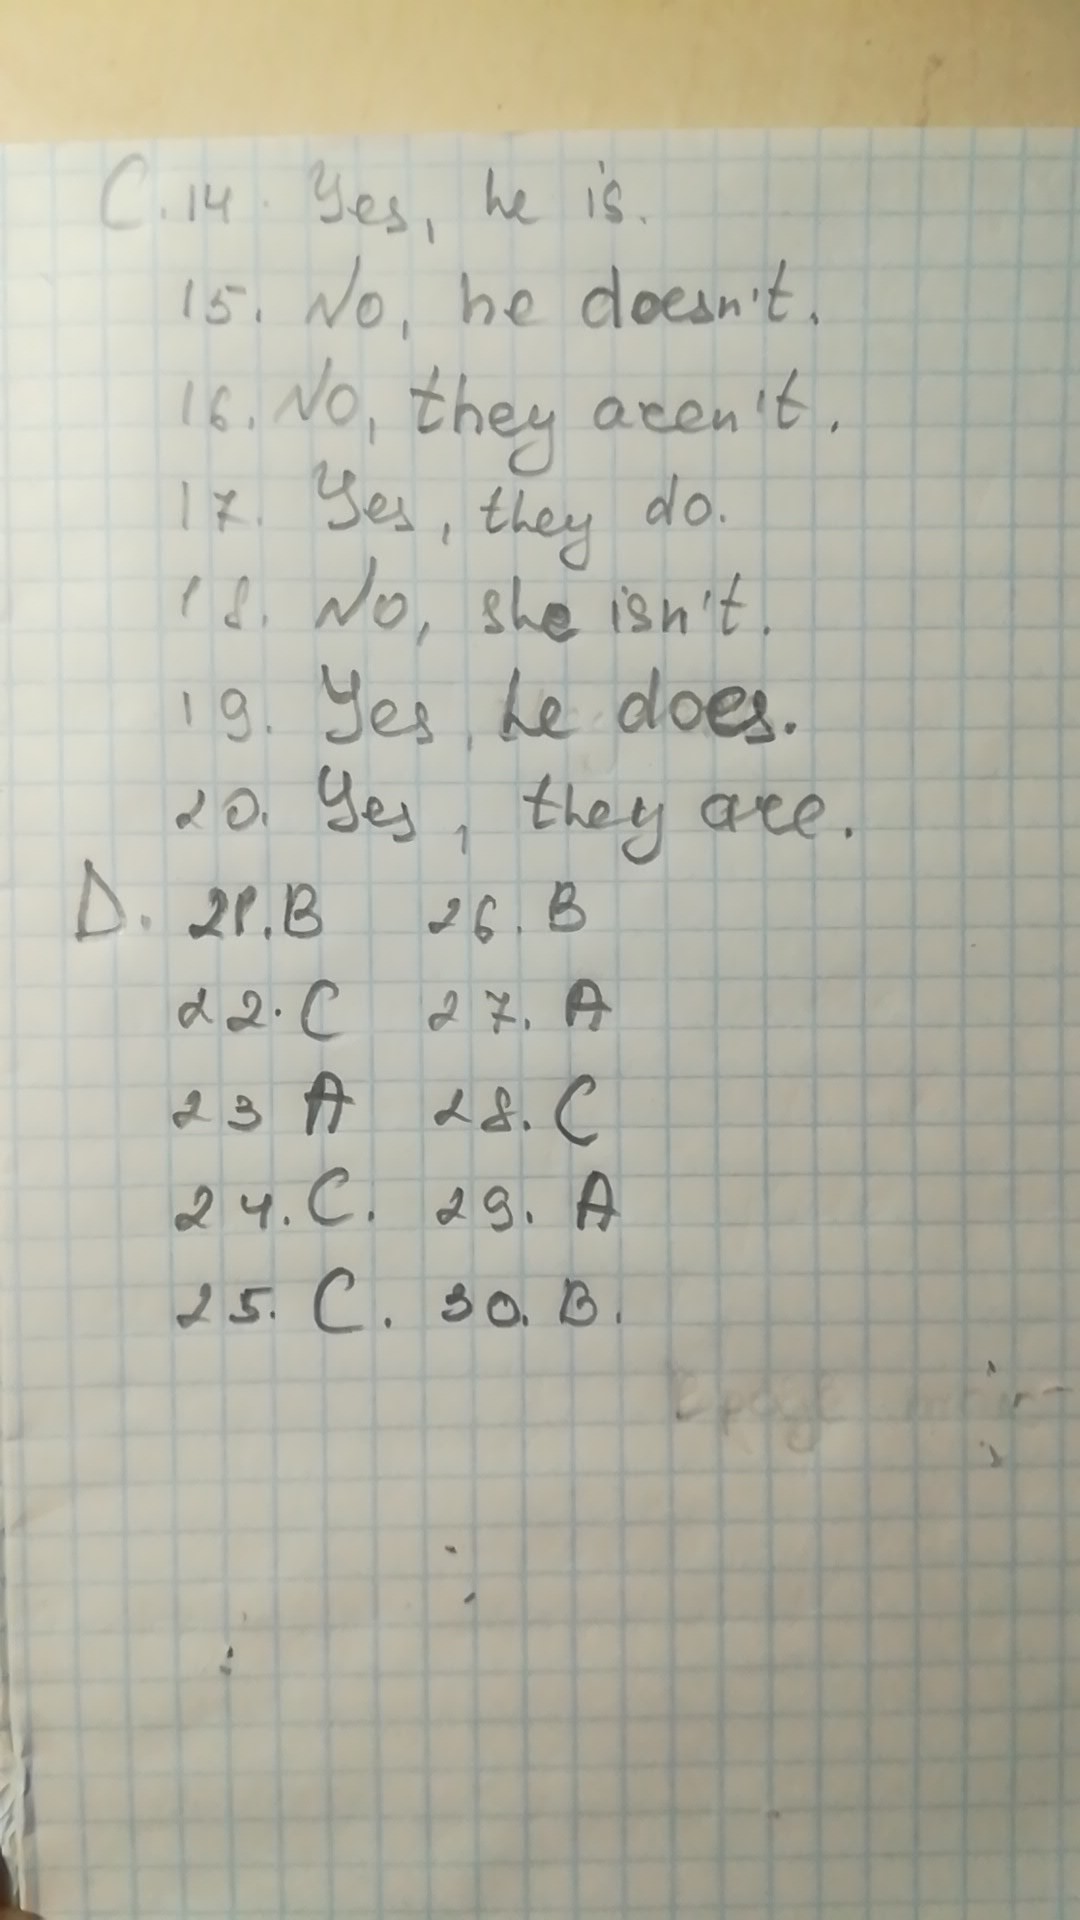 C. 14. Yes, he is.
15. No, he doesn't.
16. No, they aren't.
17. Yes, they do.
18. No, she isn't.
19. Yes, he does.
20. Yes, they are.
D. 21. B 26. B
22. C 27. A
23 A 28. C
24. C. 29. A
25. C. 30. B.